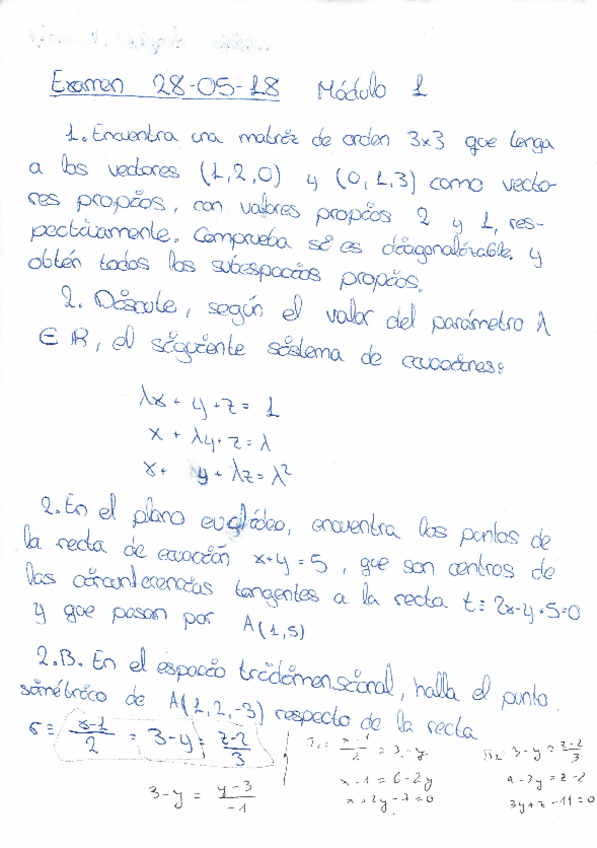 Examen 28-05-18 Módulo 1
1. Encuentra una matriz de orden 3x3 que tenga
a los vectores (1,2,0) y (0,1,3) como vecto-
res propios, con valores propios 2 y 1, res-
pectivamente. Comprueba si es diagonalizable. y
obtén todos los subespacios propios.
2. Discute, según el valor del parámetro λ
∈ R, el siguiente sistema de ecuaciones:
λx + y + z = 1
x + λy + z = λ
x + y + λz = λ²
2. En el plano euclídeo, encuentra los puntos de
la recta de ecuación x+y=5, que son centros de
las circunferencias tangentes a la recta t≡ 2x-y+5=0
y que pasan por A(1,5)
2.B. En el espacio tridimensional, halla el punto
simétrico de A(1,2,-3) respecto de la recta
r≡ (x-1)/2 = 3-y = (z-2)/3
3-y = (y-3)/-1
π₁: (x-1)/2 = 3-y
x-1 = 6-2y
x+2y-7=0
π₂: 3-y = (z-2)/3
9-3y = z-2
3y+z-11=0